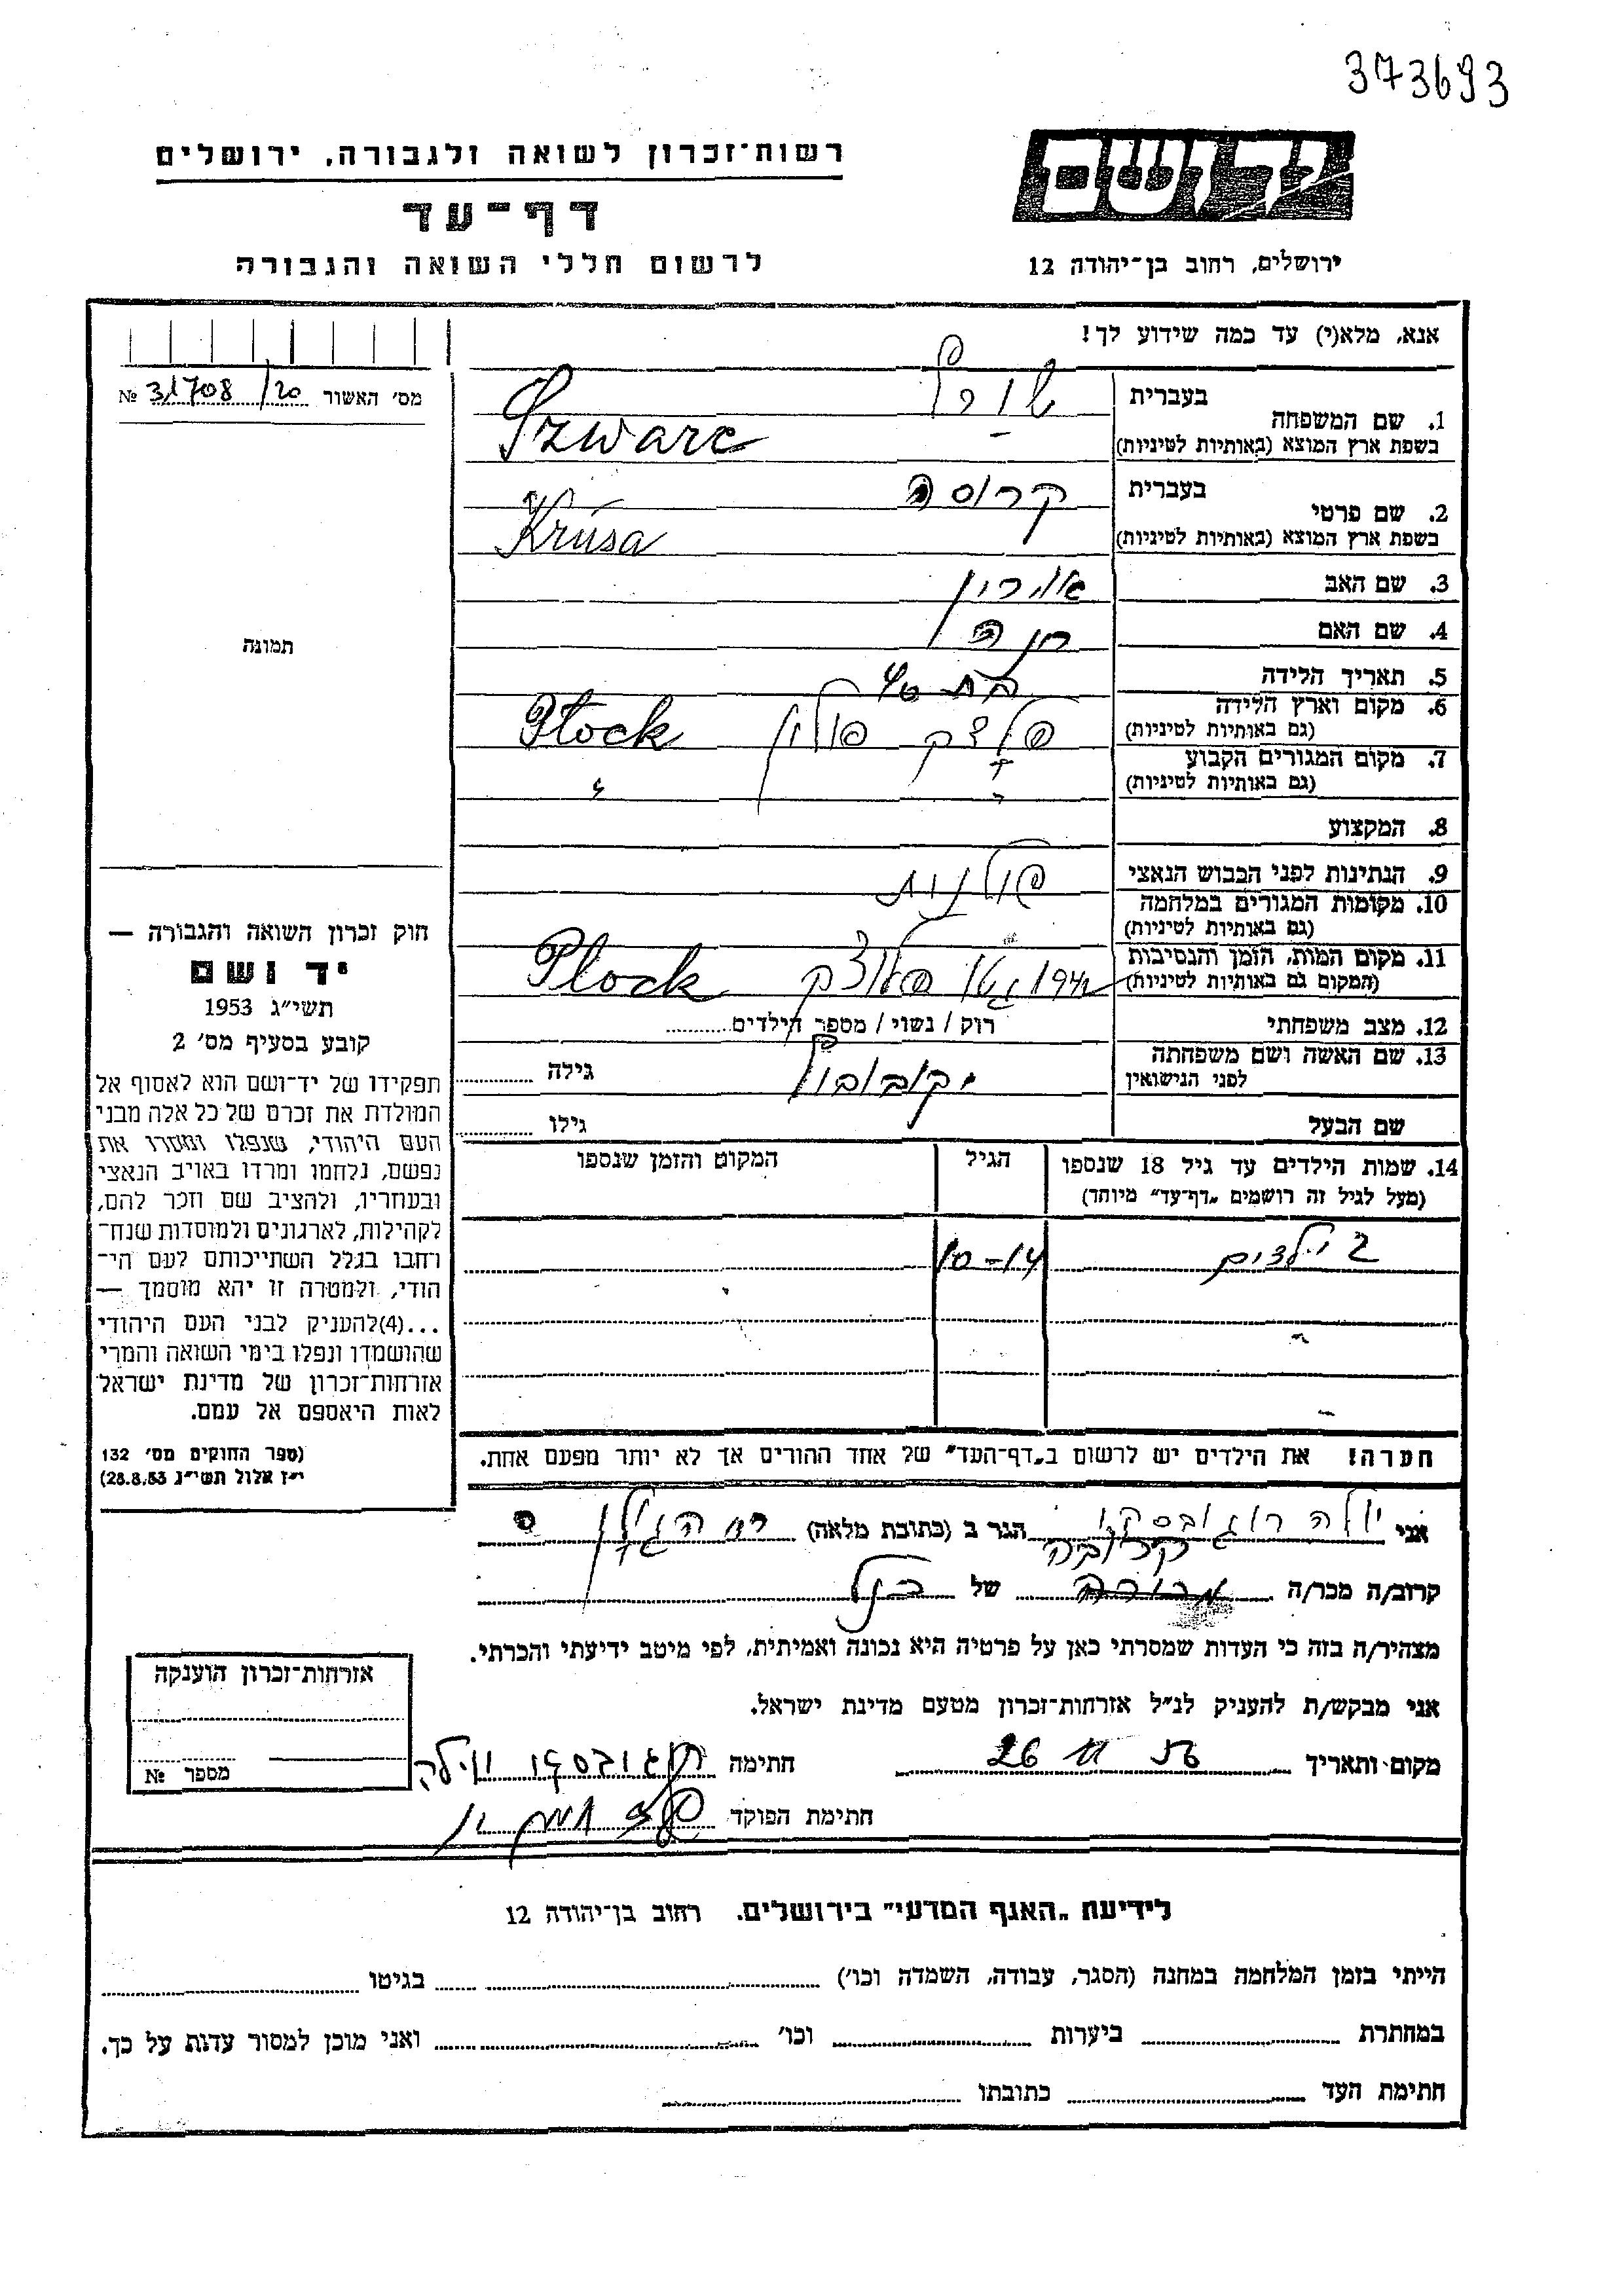 373693
רשות־זכרון לשואה ולגבורה, ירושלים
דף־עד
לרשום חללי השואה והגבורה
יד ושם
ירושלים, רחוב בן־יהודה 12
אנא, מלא(י) עד כמה שידוע לך!
מס׳ האשור № 31708/20
1. שם המשפחה
בעברית
בשפת ארץ המוצא (באותיות לטיניות) Szwarc
2. שם פרטי
בעברית קרוסה
בשפת ארץ המוצא (באותיות לטיניות) Krusa
3. שם האב אהרון
4. שם האם חנה
5. תאריך הלידה בת 40
6. מקום וארץ הלידה
(גם באותיות לטיניות) פלצק פולין Plock
7. מקום המגורים הקבוע
(גם באותיות לטיניות) " "
8. המקצוע
9. הנתינות לפני הכבוש הנאצי פולנית
10. מקומות המגורים במלחמה
(גם באותיות לטיניות)
11. מקום המות, הזמן והנסיבות
(המקום גם באותיות לטיניות) גטו פלוצק Plock
12. מצב משפחתי רוק / נשוי / מספר הילדים
13. שם האשה ושם משפחתה
לפני הנישואין גילה
שם הבעל גילו
14. שמות הילדים עד גיל 18 שנספו
(מעל לגיל זה רושמים „דף־עד" מיוחד)
הגיל
המקום והזמן שנספו
2 ילדים 10-14
הערה! את הילדים יש לרשום ב„דף־העד" של אחד ההורים אך לא יותר מפעם אחת.
תמונה
חוק זכרון השואה והגבורה —
יד ושם
תשי״ג 1953
קובע בסעיף מס׳ 2
תפקידו של יד־ושם הוא לאסוף אל
המולדת את זכרם של כל אלה מבני
העם היהודי, שנפלו ומסרו את
נפשם, נלחמו ומרדו באויב הנאצי
ובעוזריו, ולהציב שם וזכר להם,
לקהילות, לארגונים ולמוסדות שנח־
רחבו בגלל השתייכותם לעם הי־
הודי, ולמטרה זו יהא מוסמך —
...(4)להעניק לבני העם היהודי
שהושמדו ונפלו בימי השואה והמרי
אזרחות־זכרון של מדינת ישראל
לאות היאספם אל עמם.
(ספר החוקים מס׳ 132
י״ז אלול תשי״ג 28.8.53)
אני הגר ב (כתובת מלאה)
קרובה
קרוב/ה מכר/ה של
מצהיר/ה בזה כי העדות שמסרתי כאן על פרטיה היא נכונה ואמיתית, לפי מיטב ידיעתי והכרתי.
אני מבקש/ת להעניק לנ״ל אזרחות־זכרון מטעם מדינת ישראל.
מקום ותאריך חתימה
חתימת הפוקד
אזרחות־זכרון הוענקה
מספר №
לידיעת „האגף המדעי" בירושלים. רחוב בן־יהודה 12
הייתי בזמן המלחמה במחנה (הסגר, עבודה, השמדה וכו׳) בגיטו
במחתרת ביערות וכו׳ ואני מוכן למסור עדות על כך.
חתימת העד כתובתו